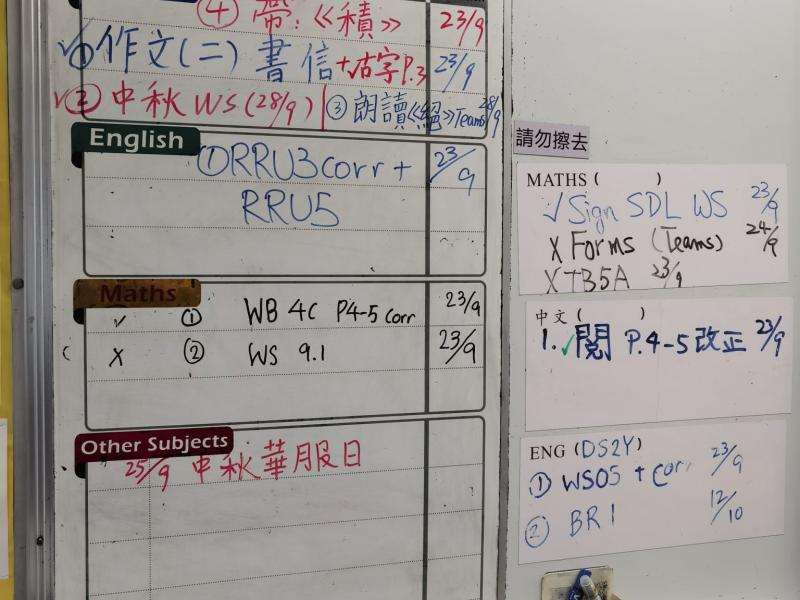 ④ 常:《積》 23/9
✓① 作文(二)書信+古字P.3 23/9
✓② 中秋 WS (28/9) ③ 朗讀《絕》Teams 28/9
English
① RRU3 corr + 23/9
RRU5
Maths
✓ ① WB 4C P4-5 corr 23/9
( X ② WS 9.1 23/9
Other Subjects
25/9 中秋華服日
請勿擦去
MATHS ( )
✓ Sign SDL WS 23/9
X Forms (Teams) 24/9
X TB5A 23/9
中文 ( )
1. ✓ 閱 P.4-5 改正 23/9
ENG (DS2Y)
① WS05 + Corr 23/9
② BR 1 12/10